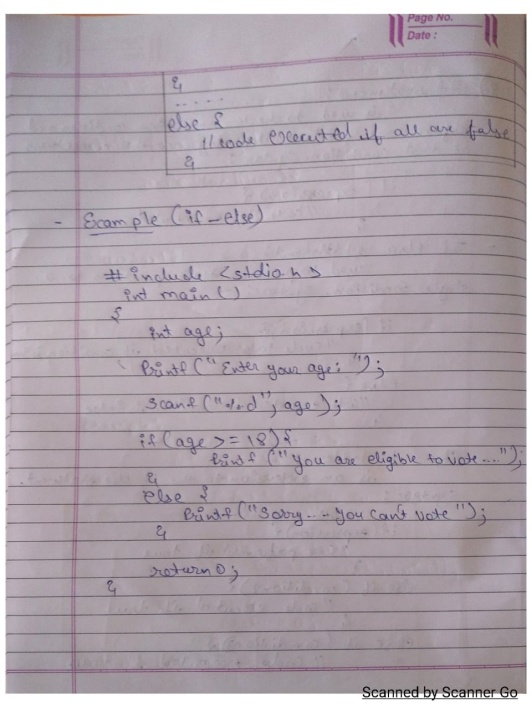 Page No.
Date :
}
.....
else {
// code executed if all are false
}
- Example (if-else)
# include <stdio.h>
int main()
{
int age;
Printf ("Enter your age: ");
scanf ("%d", age);
if (age >= 18) {
Printf ("You are eligible to vote....");
}
else {
Printf ("Sorry... You can't vote");
}
return 0;
}
Scanned by Scanner Go